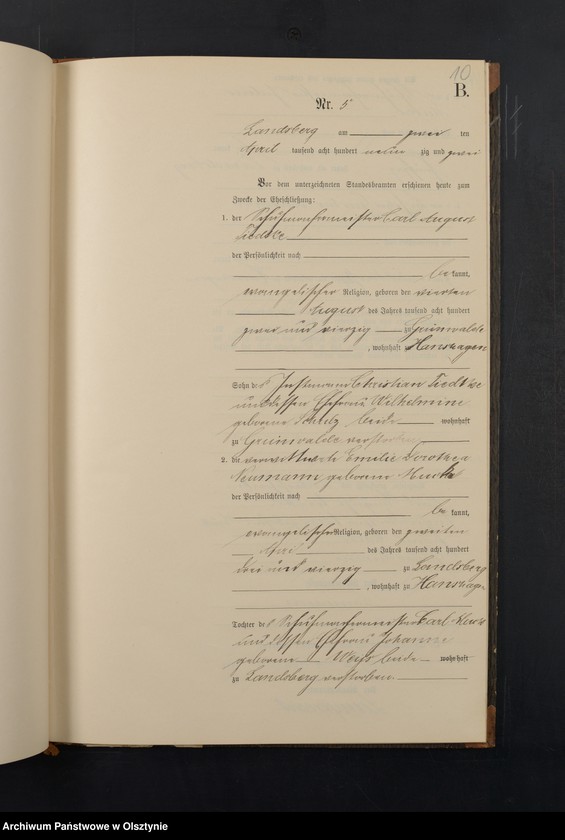 10
B.
Nr. 5
Landsberg am zwei ten
April tausend acht hundert neun zig und zwei
Vor dem unterzeichneten Standesbeamten erschienen heute zum
Zwecke der Eheschließung:
1. der Schuhmachermeister Carl August
Tiedtke
der Persönlichkeit nach
be kannt,
evangelischer Religion, geboren den vierten
August des Jahres tausend acht hundert
zwei und vierzig zu Grünwalde
, wohnhaft zu Hanshagen
Sohn des Instmann Christian Tiedtke
und dessen Ehefrau Wilhelmine
geborene Schulz beide wohnhaft
zu Grünwalde verstorben
2. die verwittwete Emilie Dorothea
Neumann geborene
der Persönlichkeit nach
be kannt,
evangelischer Religion, geboren den zweiten
April des Jahres tausend acht hundert
drei und vierzig zu Landsberg
, wohnhaft zu Hanshagen
Tochter des Schuhmachermeister Carl
und dessen Ehefrau Johanne
geborene Weiß beide wohnhaft
zu Landsberg verstorben
Archiwum Państwowe w Olsztynie